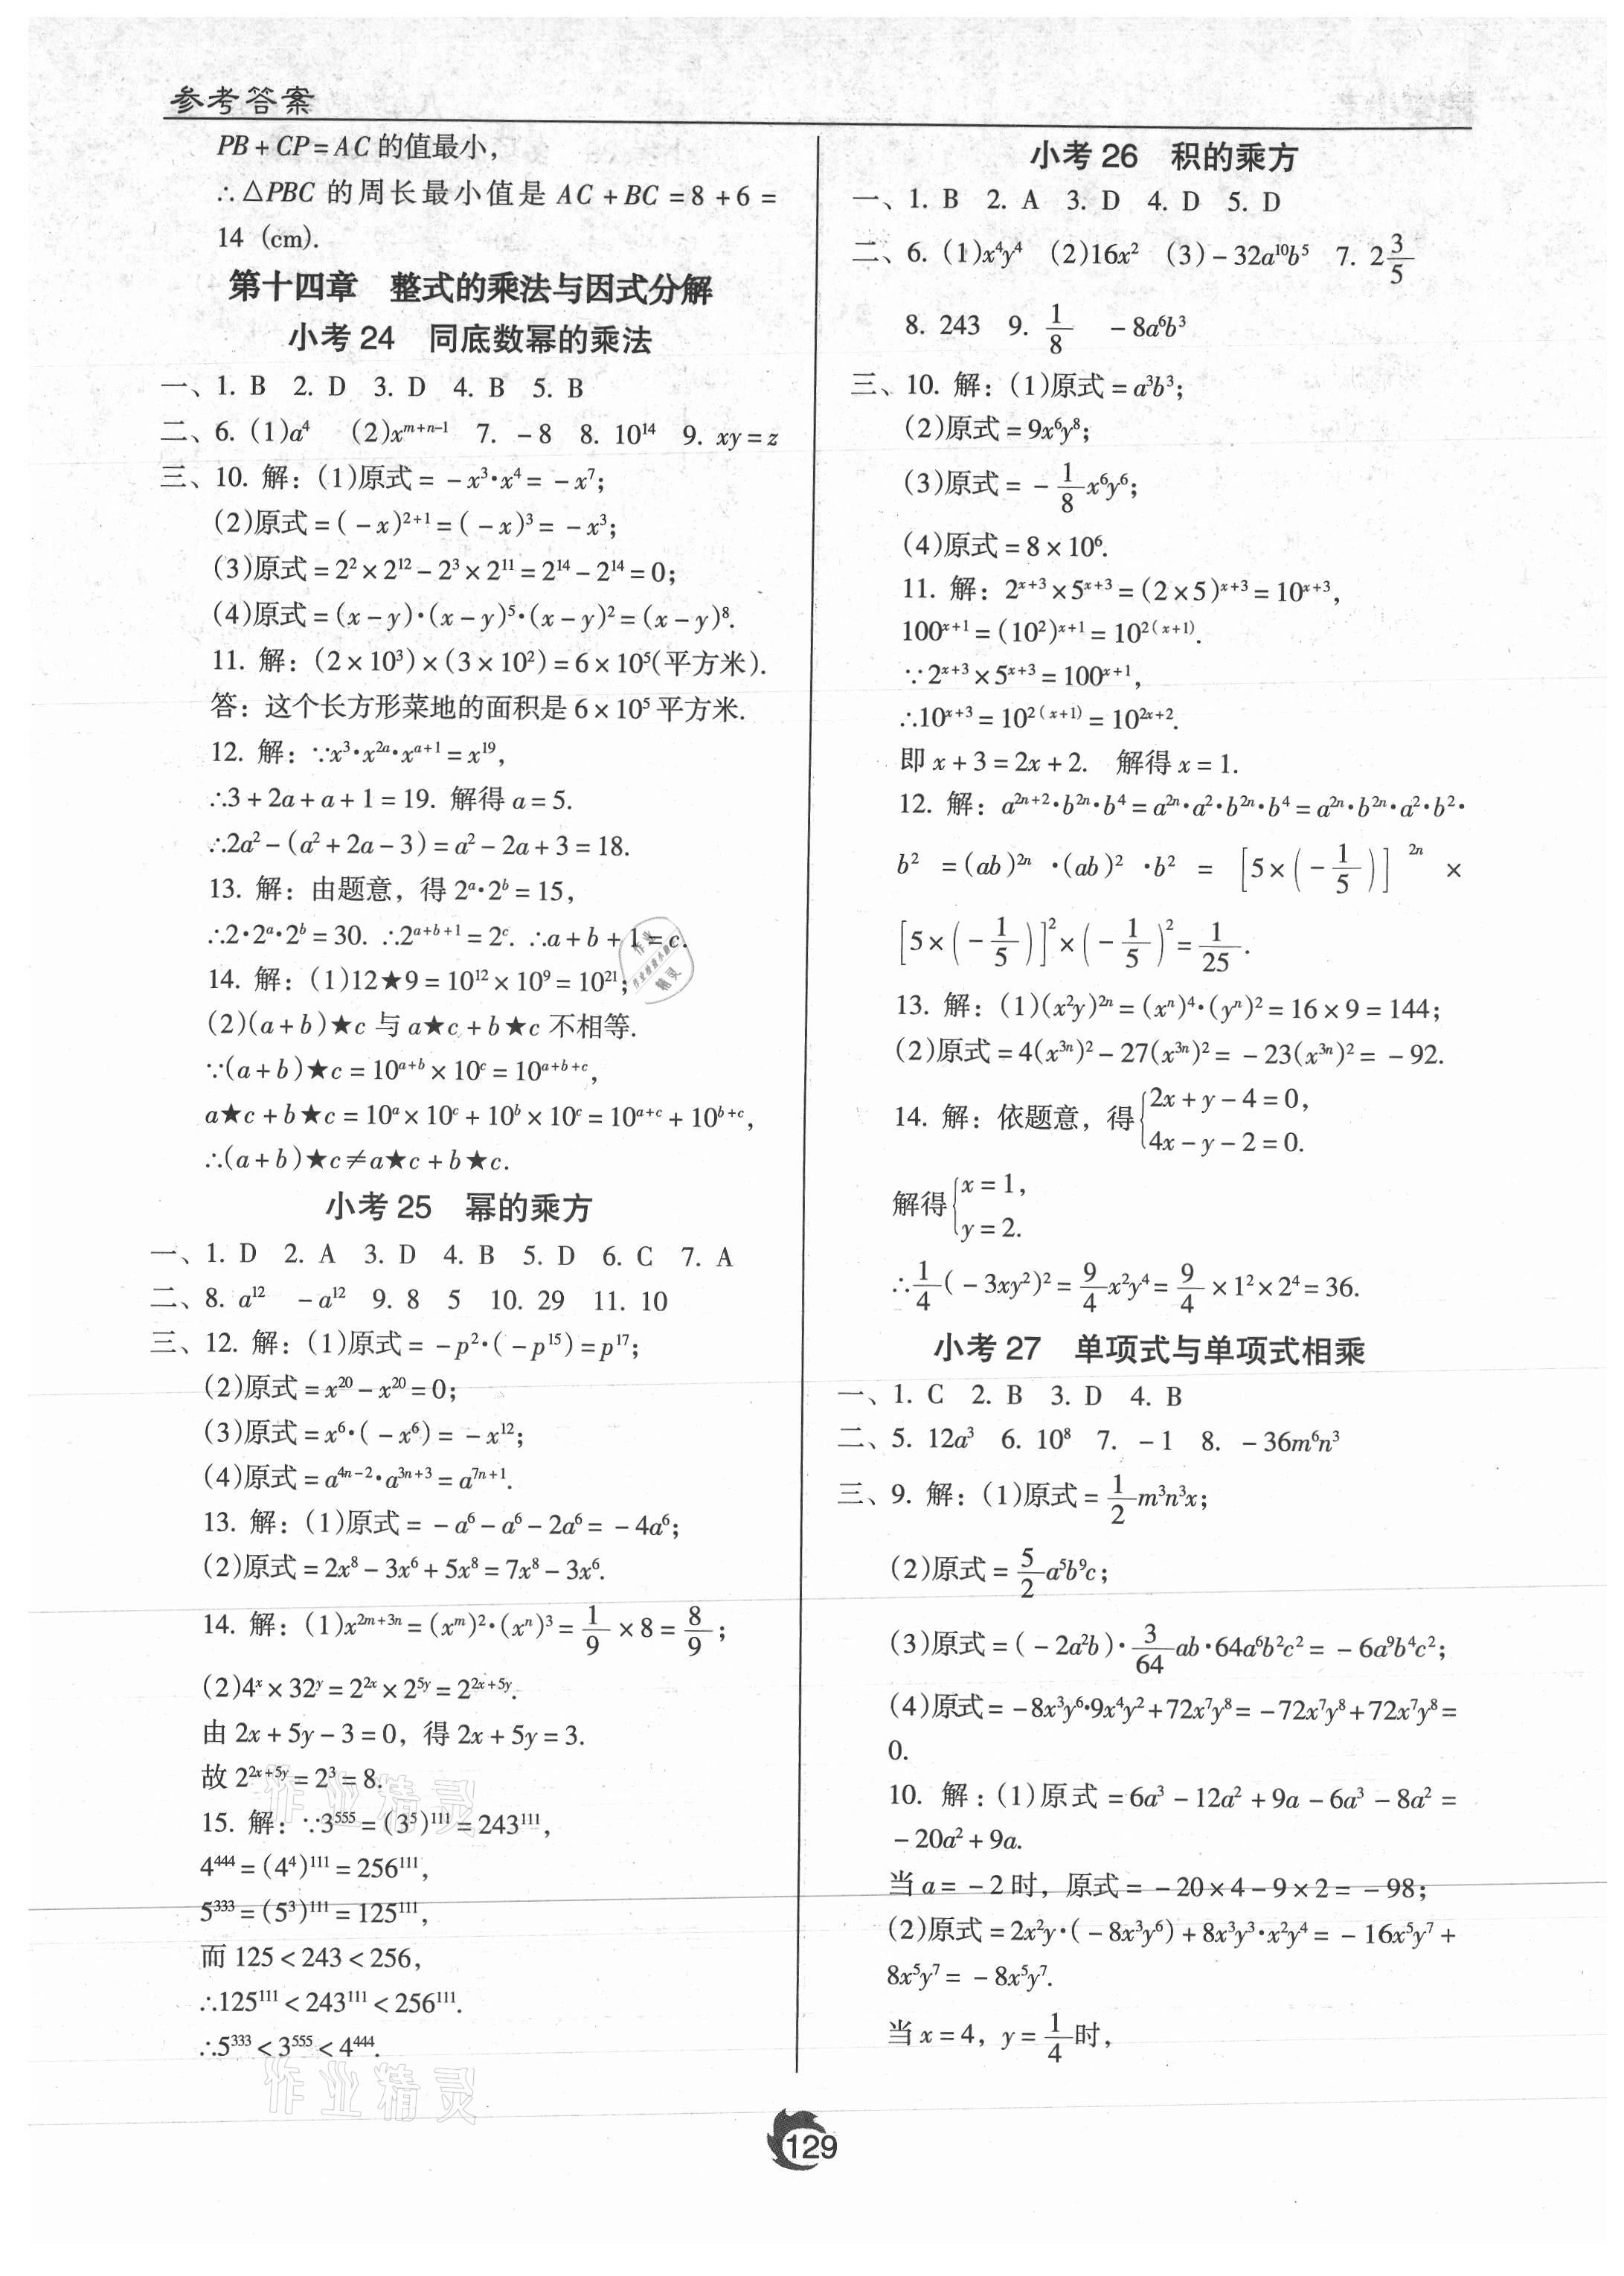 参考答案
PB+CP=AC 的值最小，
∴△PBC 的周长最小值是 AC+BC=8+6=
14 (cm).
第十四章 整式的乘法与因式分解
小考 24 同底数幂的乘法
一、1. B 2. D 3. D 4. B 5. B
二、6. (1)a⁴ (2)xᵐ⁺ⁿ⁻¹ 7. -8 8. 10¹⁴ 9. xy=z
三、10. 解：(1)原式=-x³·x⁴=-x⁷；
(2)原式=(-x)²⁺¹=(-x)³=-x³；
(3)原式=2²×2¹²-2³×2¹¹=2¹⁴-2¹⁴=0；
(4)原式=(x-y)·(x-y)⁵·(x-y)²=(x-y)⁸.
11. 解：(2×10³)×(3×10²)=6×10⁵(平方米).
答：这个长方形菜地的面积是 6×10⁵ 平方米.
12. 解：∵x³·x²ᵃ·xᵃ⁺¹=x¹⁹，
∴3+2a+a+1=19. 解得 a=5.
∴2a²-(a²+2a-3)=a²-2a+3=18.
13. 解：由题意，得 2ᵃ·2ᵇ=15，
∴2·2ᵃ·2ᵇ=30. ∴2ᵃ⁺ᵇ⁺¹=2ᶜ. ∴a+b+1=c.
14. 解：(1)12★9=10¹²×10⁹=10²¹；
(2)(a+b)★c 与 a★c+b★c 不相等.
∵(a+b)★c=10ᵃ⁺ᵇ×10ᶜ=10ᵃ⁺ᵇ⁺ᶜ，
a★c+b★c=10ᵃ×10ᶜ+10ᵇ×10ᶜ=10ᵃ⁺ᶜ+10ᵇ⁺ᶜ，
∴(a+b)★c≠a★c+b★c.
小考 25 幂的乘方
一、1. D 2. A 3. D 4. B 5. D 6. C 7. A
二、8. a¹² -a¹² 9. 8 5 10. 29 11. 10
三、12. 解：(1)原式=-p²·(-p¹⁵)=p¹⁷；
(2)原式=x²⁰-x²⁰=0；
(3)原式=x⁶·(-x⁶)=-x¹²；
(4)原式=a⁴ⁿ⁻²·a³ⁿ⁺³=a⁷ⁿ⁺¹.
13. 解：(1)原式=-a⁶-a⁶-2a⁶=-4a⁶；
(2)原式=2x⁸-3x⁶+5x⁸=7x⁸-3x⁶.
14. 解：(1)x²ᵐ⁺³ⁿ=(xᵐ)²·(xⁿ)³=1/9×8=8/9；
(2)4ˣ×32ʸ=2²ˣ×2⁵ʸ=2²ˣ⁺⁵ʸ.
由 2x+5y-3=0，得 2x+5y=3.
故 2²ˣ⁺⁵ʸ=2³=8.
15. 解：∵3⁵⁵⁵=(3⁵)¹¹¹=243¹¹¹，
4⁴⁴⁴=(4⁴)¹¹¹=256¹¹¹，
5³³³=(5³)¹¹¹=125¹¹¹，
而 125<243<256，
∴125¹¹¹<243¹¹¹<256¹¹¹.
∴5³³³<3⁵⁵⁵<4⁴⁴⁴.
作业精灵
作业精灵
小考 26 积的乘方
一、1. B 2. A 3. D 4. D 5. D
二、6. (1)x⁴y⁴ (2)16x² (3)-32a¹⁰b⁵ 7. 2 3/5
8. 243 9. 1/8 -8a⁶b³
三、10. 解：(1)原式=a³b³；
(2)原式=9x⁶y⁸；
(3)原式=-1/8x⁶y⁶；
(4)原式=8×10⁶.
11. 解：2ˣ⁺³×5ˣ⁺³=(2×5)ˣ⁺³=10ˣ⁺³，
100ˣ⁺¹=(10²)ˣ⁺¹=10²⁽ˣ⁺¹⁾.
∵2ˣ⁺³×5ˣ⁺³=100ˣ⁺¹，
∴10ˣ⁺³=10²⁽ˣ⁺¹⁾=10²ˣ⁺².
即 x+3=2x+2. 解得 x=1.
12. 解：a²ⁿ⁺²·b²ⁿ·b⁴=a²ⁿ·a²·b²ⁿ·b⁴=a²ⁿ·b²ⁿ·a²·b²·
b²=(ab)²ⁿ·(ab)²·b²=[5×(-1/5)]²ⁿ×
[5×(-1/5)]²×(-1/5)²=1/25.
13. 解：(1)(x²y)²ⁿ=(xⁿ)⁴·(yⁿ)²=16×9=144；
(2)原式=4(x³ⁿ)²-27(x³ⁿ)²=-23(x³ⁿ)²=-92.
14. 解：依题意，得{2x+y-4=0，
4x-y-2=0.
解得{x=1，
y=2.
∴1/4(-3xy²)²=9/4x²y⁴=9/4×1²×2⁴=36.
小考 27 单项式与单项式相乘
一、1. C 2. B 3. D 4. B
二、5. 12a³ 6. 10⁸ 7. -1 8. -36m⁶n³
三、9. 解：(1)原式=1/2m³n³x；
(2)原式=5/2a⁵b⁹c；
(3)原式=(-2a²b)·3/64ab·64a⁶b²c²=-6a⁹b⁴c²；
(4)原式=-8x³y⁶·9x⁴y²+72x⁷y⁸=-72x⁷y⁸+72x⁷y⁸=
0.
10. 解：(1)原式=6a³-12a²+9a-6a³-8a²=
-20a²+9a.
当 a=-2 时，原式=-20×4-9×2=-98；
(2)原式=2x²y·(-8x³y⁶)+8x³y³·x²y⁴=-16x⁵y⁷+
8x⁵y⁷=-8x⁵y⁷.
当 x=4，y=1/4时，
129